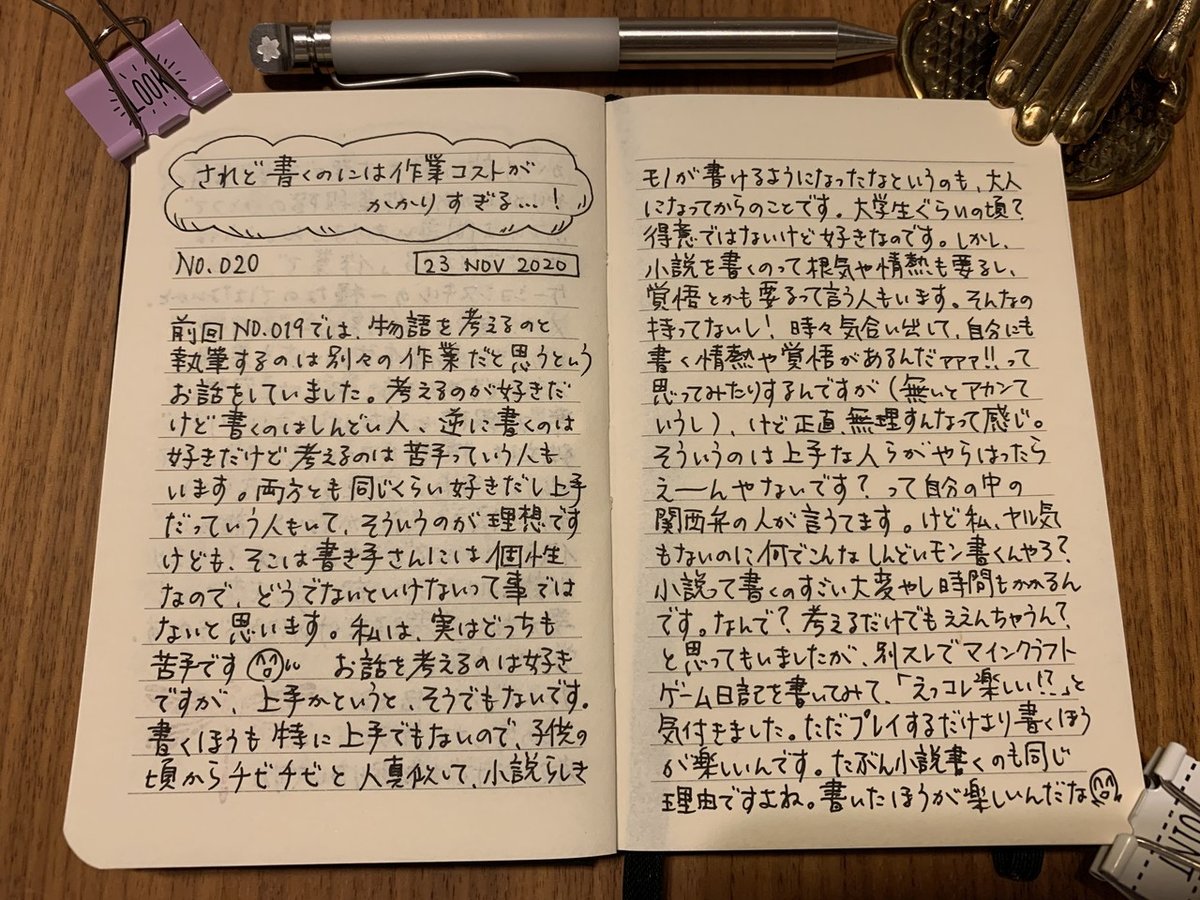 LOOK
されど書くのには作業コストが
かかりすぎる…!
NO.020
23 NOV 2020
前回NO.019では、物語を考えるのと
執筆するのは別々の作業だと思うという
お話をしていました。考えるのが好きだ
けど書くのはしんどい人、逆に書くのは
好きだけど考えるのは苦手っていう人も
います。両方とも同じくらい好きだし上手
だっていう人もいて、そういうのが理想です
けども、そこは書き手さんには個性
なので、どうでないといけないって事では
ないと思います。私は、実はどっちも
苦手です お話を考えるのは好き
ですが、上手かというと、そうでもないです。
書くほうも特に上手でもないので、子供の
頃からチビチビと人真似して、小説らしき
モノが書けるようになったなというのも、大人
になってからのことです。大学生ぐらいの頃?
得意ではないけど好きなのです。しかし、
小説を書くのって根気や情熱も要るし、
覚悟とかも要るって言う人もいます。そんなの
持ってないし! 時々気合い出して、自分にも
書く情熱や覚悟があるんだァァァ!!って
思ってみたりするんですが(無いとアカンて
いうし)、けど正直、無理すんなって感じ。
そういうのは上手な人らがやらはったら
えーんやないです?って自分の中の
関西弁の人が言うてます。けど私、ヤル気
もないのに何でこんなしんどいモン書くんやろ?
小説って書くのすごい大変やし時間もかかるん
です。なんで?考えるだけでもええんちゃうん?
と思ってもいましたが、別スレでマインクラフト
ゲーム日記を書いてみて、「えっコレ楽しい!?」と
気付きました。ただプレイするだけより書くほう
が楽しいんです。たぶん小説書くのも同じ
理由ですよね。書いたほうが楽しいんだな